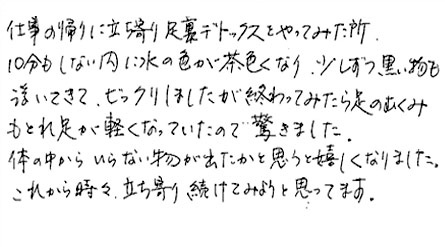 仕事の帰りに立ち寄り足裏デトックスをやってみた所、
10分もしない内に水の色が茶色くなり、少しずつ黒い物も
浮いてきて、ビックリしましたが終わってみたら足のむくみ
もとれ足が軽くなっていたので驚きました。
体の中からいらない物が出たかと思うと嬉しくなりました。
これから時々、立ち寄り続けてみようと思ってます。